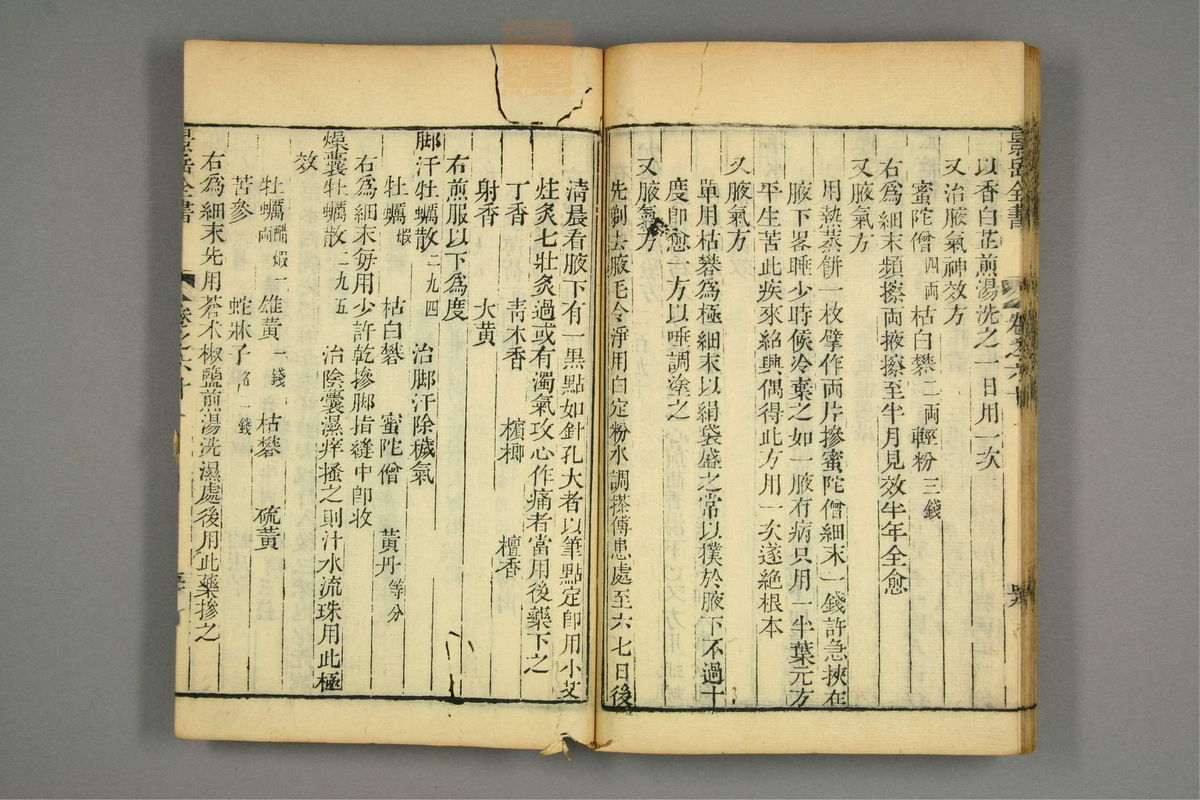 景岳全書
卷之六十
以香白芷煎湯洗之一日用一次
又治腋氣神效方
蜜陀僧四兩 枯白礬二兩 輕粉三錢
右為細末頻擦兩掖擦至半月見效半年全愈
又腋氣方
用熱蒸餅一枚擘作兩片摻蜜陀僧細末一錢許急挾在
腋下畧睡少時候冷棄之如一腋有病只用一半葉元方
平生苦此疾來紹興偶得此方用一次遂絕根本
又腋氣方
單用枯礬為極細末以絹袋盛之常以撲於腋下不過十
度即愈一方以唾調塗之
又腋氣方
先剃去腋毛令淨用白定粉水調搽傅患處至六七日後
清晨看腋下有一黑點如針孔大者以筆點定即用小艾
炷灸七壯灸過或有濁氣攻心作痛者當用後藥下之
丁香 青木香 檳榔 檀香
射香 大黄
右煎服以下為度
脚汗牡蠣散二九四 治脚汗除穢氣
牡蠣煆 枯白礬 蜜陀僧 黄丹等分
右為細末每用少許乾摻脚指縫中即收
燥囊牡蠣散二九五 治陰囊濕痒搔之則汁水流珠用此極
效
牡蠣醋煆兩 雄黄一錢 枯礬 硫黄
苦參 蛇牀子各一錢
右為細末先用蒼术椒鹽煎湯洗濕處後用此藥摻之
景岳全書
卷之六十